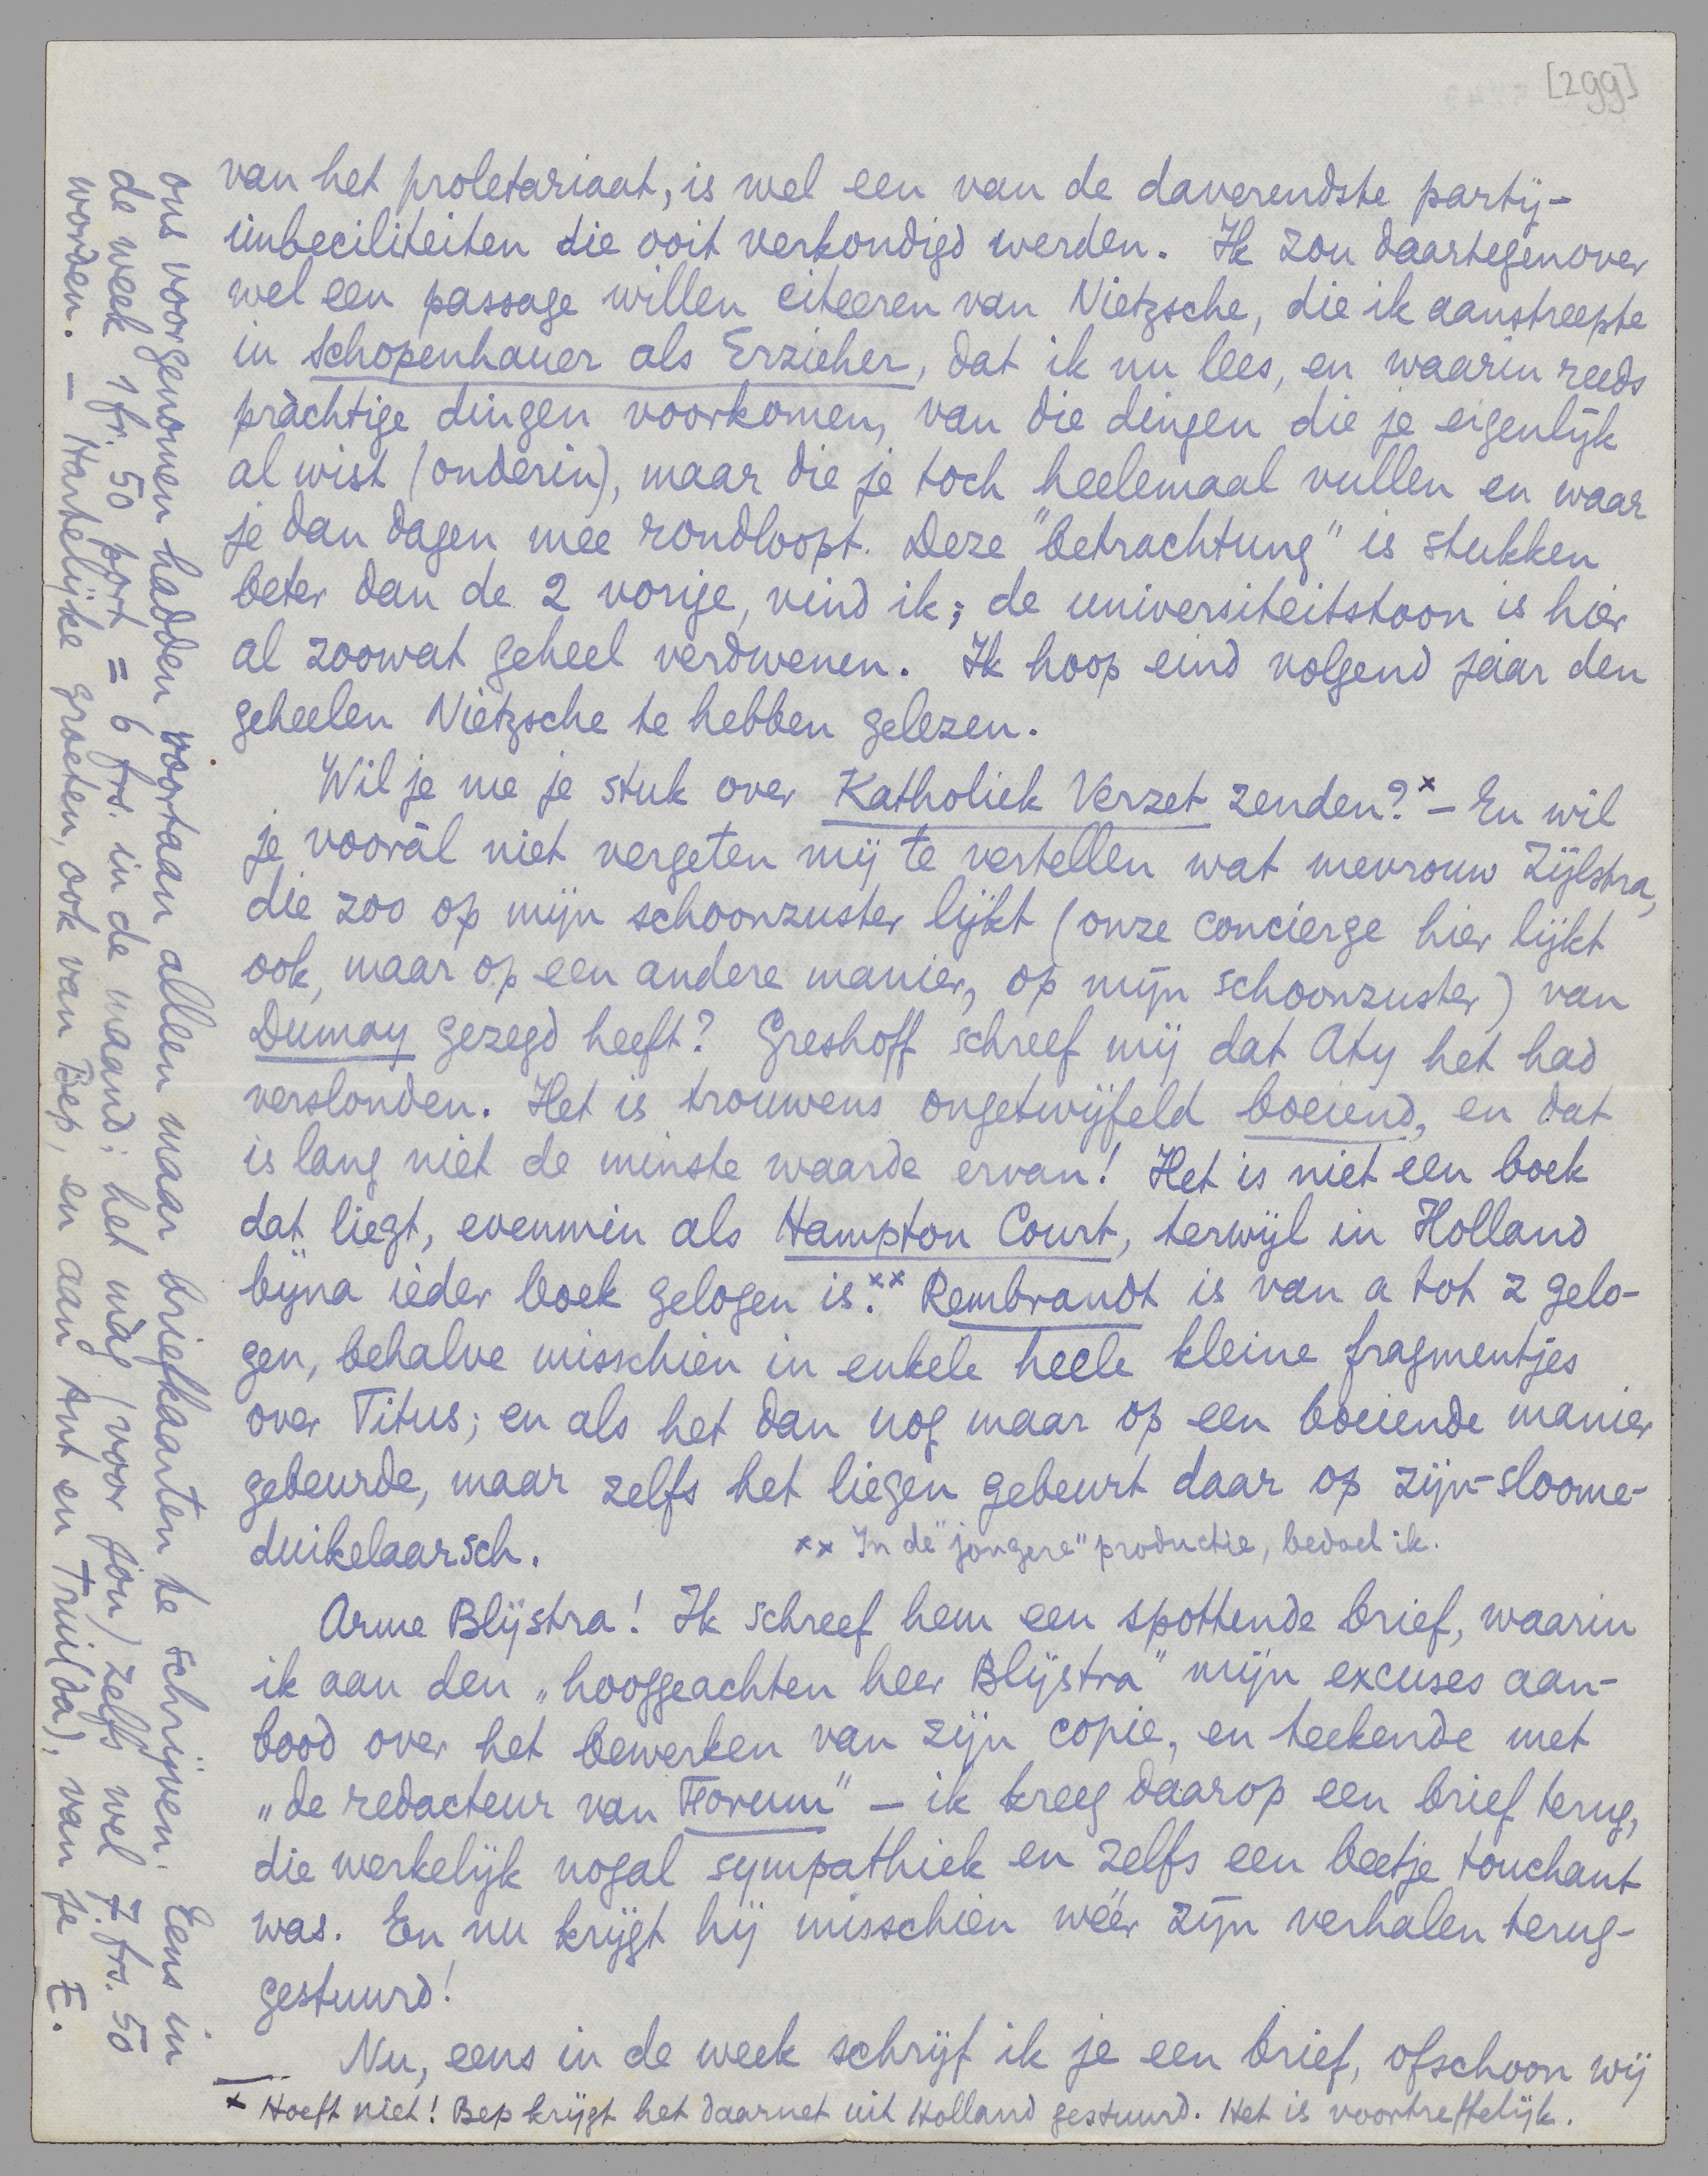 [299]
van het proletariaat, is wel een van de daverendste party-
imbeciliteiten die ooit verkondigd werden. Ik zou daartegenover
wel een passage willen citeeren van Nietzsche, die ik aanstreepte
in Schopenhauer als Erzieher, dat ik nu lees, en waarin reeds
pràchtige dingen voorkomen, van die dingen die je eigenlijk
al wist (onderin), maar die je toch heelemaal vullen en waar
je dan dagen mee rondloopt. Deze "betrachtung" is stukken
beter dan de 2 vorige, vind ik; de universiteitstoon is hier
al zoowat geheel verdwenen. Ik hoop eind volgend jaar den
geheelen Nietzsche te hebben gelezen.
Wil je me je stuk over Katholiek Verzet zenden?x — En wil
je vooràl niet vergeten mij te vertellen wat mevrouw Zijlstra,
die zoo op mijn schoonzuster lijkt (onze concierge hier lijkt
ook, maar op een andere manier, op mijn schoonzuster) van
Dumay gezegd heeft? Greshoff schreef mij dat Aty het had
verslonden. Het is trouwens ongetwijfeld boeiend, en dat
is lang niet de minste waarde ervan! Het is niet een boek
dat liegt, evenmin als Hampton Court, terwijl in Holland
bijna ieder boek gelogen is.xx Rembrandt is van a tot z gelo-
gen, behalve misschien in enkele heele kleine fragmentjes
over Titus; en als het dan nog maar op een boeiende manier
gebeurde, maar zelfs het liegen gebeurt daar op zijn-sloome-
duikelaarsch.
xx In de "jongere" productie, bedoel ik.
Arme Blijstra! Ik schreef hem een spottende brief, waarin
ik aan den „hooggeachten heer Blijstra" mijn excuses aan-
bood over het bewerken van zijn copie, en teekende met
„de redacteur van Forum" — ik kreeg daarop een brief terug,
die werkelijk nogal sympathiek en zelfs een beetje touchant
was. En nu krijgt hij misschien wéér zijn verhalen terug-
gestuurd!
Nu, eens in de week schrijf ik je een brief, ofschoon wij
x Hoeft niet! Bep krijgt het daarnet uit Holland gestuurd. Het is voortreffelijk.
ons voorgenomen hadden voortaan alleen maar briefkaarten te schrijven. Eens in
de week 1 fr. 50 port = 6 frs. in de maand; het mag (voor jou) zelfs wel 7 frs. 50
worden. — Hartelijke groeten, ook van Bep, en aan Ant en Truii(da), van je E.